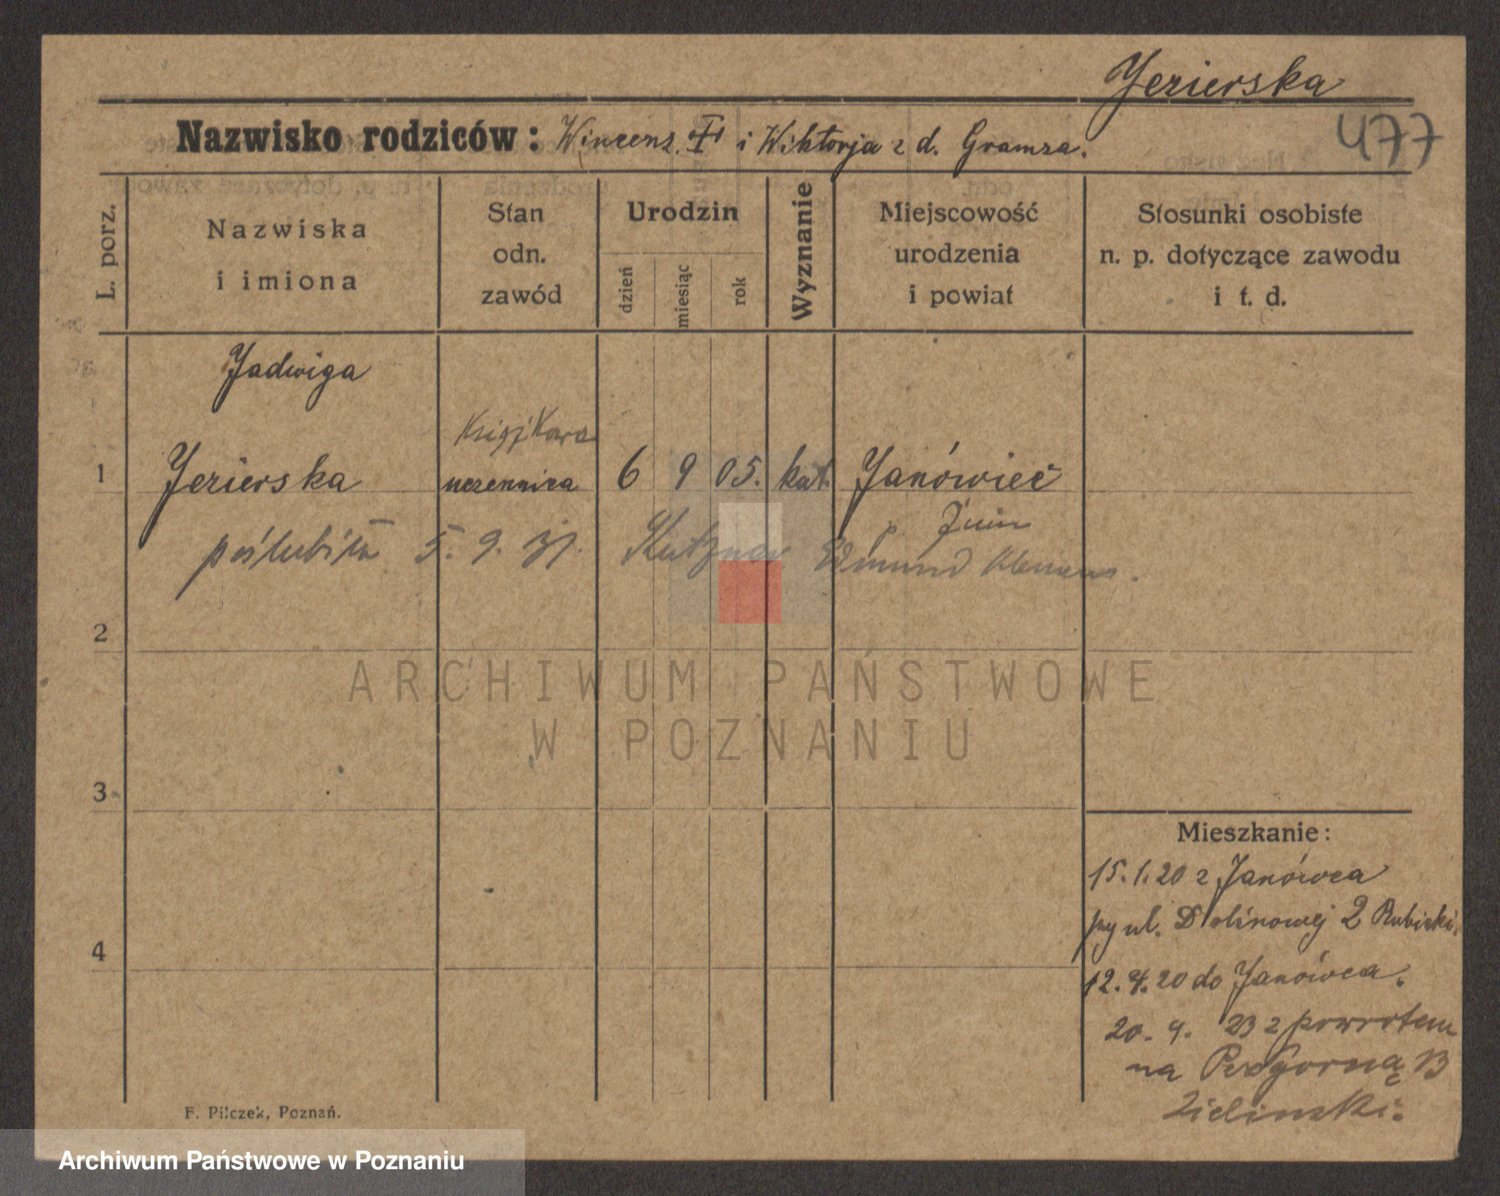 Jezierska
Nazwisko rodziców: Wincenz. i Wiktorja z d. Gramza.
477
L. porz.
Nazwiska
i imiona
Stan
odn.
zawód
Urodzin
dzień
miesiąc
rok
Wyznanie
Miejscowość
urodzenia
i powiat
Stosunki osobiste
n. p. dotyczące zawodu
i t. d.
Jadwiga
1 Jezierska uczennica 6 9 05. kat. Janówiec
Żnin
poślubiła 5. 9. 31. Edmund Klemens.
2
ARCHIWUM PAŃSTWOWE
W POZNANIU
3
Mieszkanie:
15.1.20 z Janówca
ul. Dolinowej 2 Rubicki.
4
12.4.20 do Janówca.
20. 9. 23 z powrotem
na Podgorną 13
Zielinski.
F. Pilczek, Poznań.
Archiwum Państwowe w Poznaniu